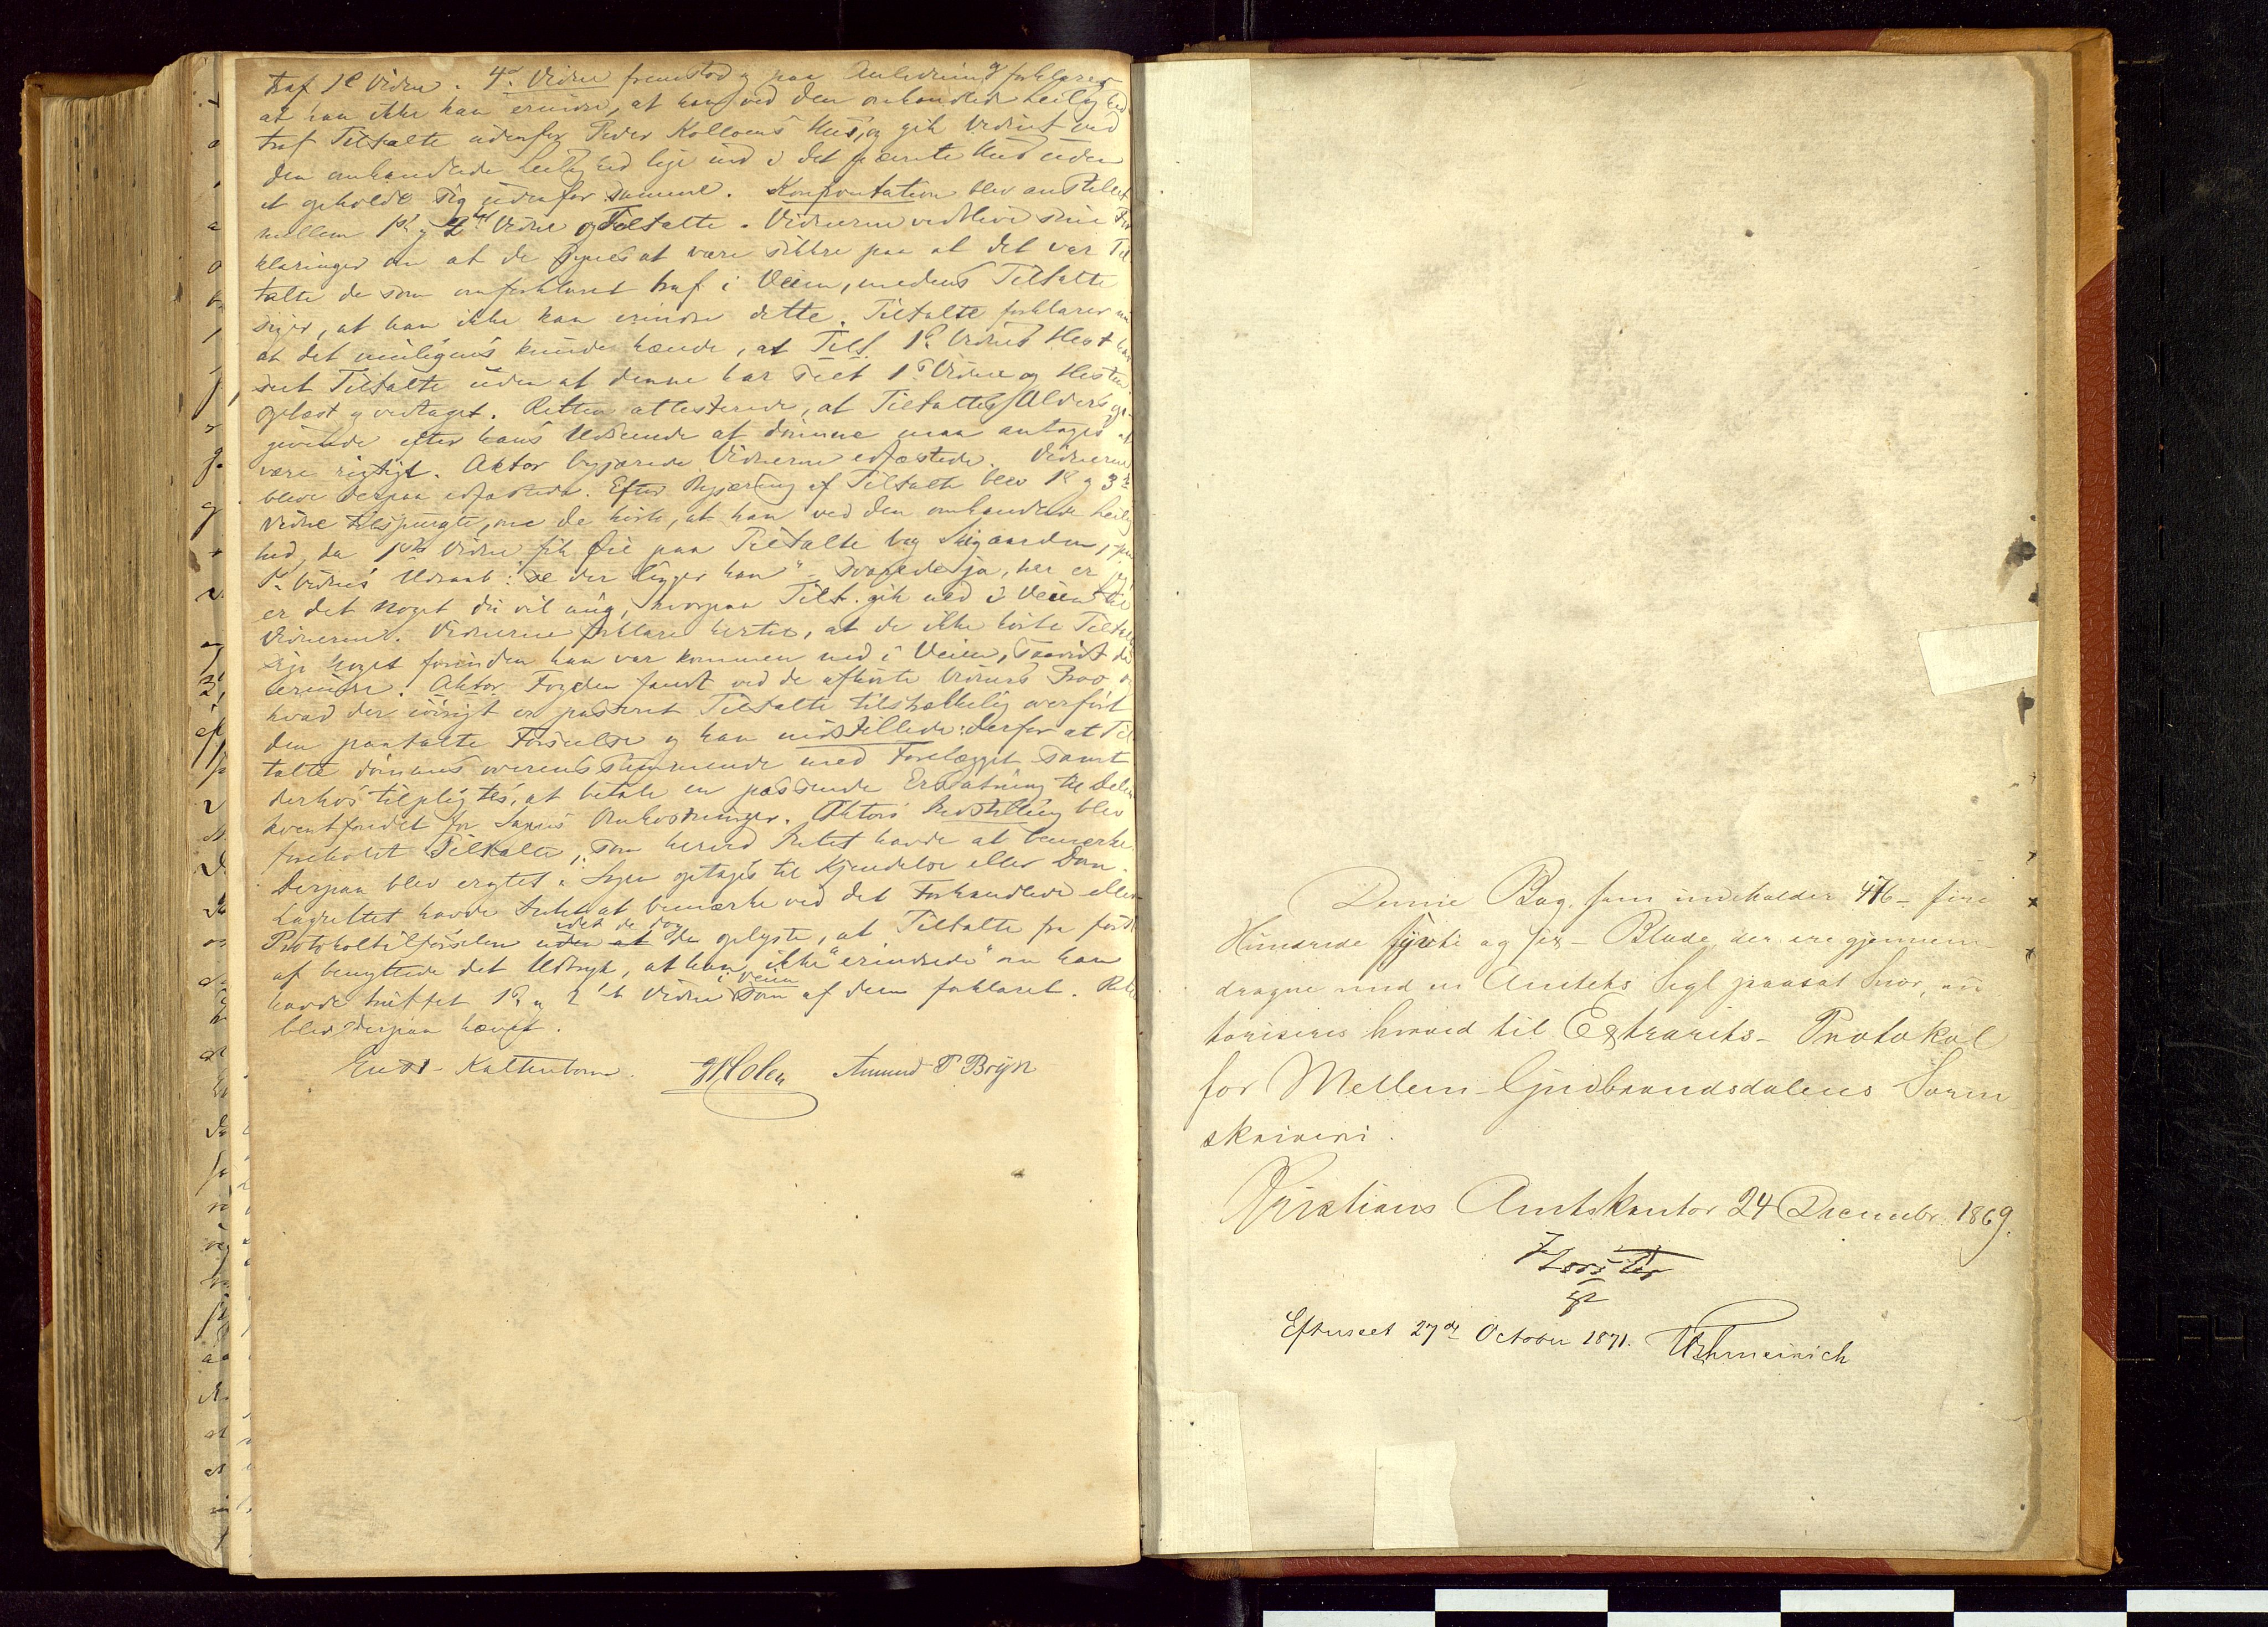 traf 1ste Vidne. 4de Vidne fremstod og paa Anledning forklarer
at han ikke kan erindre, at han ved den omhandlede Leilighed
traf Tiltalte udenfor Peder Kolloens Hus, og gik Vidnet ved
den omhandlede Leilighed lige ind i det nævnte Hus uden
at opholde sig udenfor samme. Konfrontation blev anstillet
mellem 1ste og 2det Vidne og Tiltalte. Vidnerne vedblive sine For
klaringer om at de synes at være sikkre paa at det var Til
talte de som omforklaret traf i Veien, medens Tiltalte
siger, at han ikke kan erindre dette. Tiltalte forklarer
at det muligens kunde hænde, at Tilt. 1ste Vidnes Hest har
seet Tiltalte uden at denne har seet 1ste Vidne og Hesten
Oplæst og vedtaget. Retten attesterede, at Tiltaltes Alders
givende efter hans Udseende at dømme maa antages at
være rigtigt. Aktor begjærede Vidnerne edfæstede. Vidnerne
bleve derpaa edfæstede. Efter Begjæring af Tiltalte blev 1ste og 3de
Vidne tilspurgte, om de hørte, at han ved den omhandlede Leilig
hed, da 1ste Vidne fik Øie paa Tiltalte bag Skigaarden, paa
1ste Vidnes Udraab: "se der ligger han" svarede ja, her er jeg
er det noget du vil mig, hvorpaa Tilt. gik ned i Veien til
Vidnerne. Vidnerne forklare hertil, at de ikke hørte Tiltalte
sige noget forinden han var kommen ned i Veien, saavidt de
erindre. Aktor Fogden fandt ved de afhørte Vidners Prov og
hvad der iøvrigt er passeret Tiltalte tilstrækkelig overført
den paatalte Forseelse og han indstillede: derfor at Til
talte dømmes overensstemmende med Forelægget samt
derhos tilpligtes, at betale en passende Erstatning til Delin
kventfondet for Sagens Omkostninger. Aktors Indstilling blev
foreholdt Tiltalte, som herved Intet havde at bemærke.
Derpaa blev eragtet: Sagen optages til Kjendelse eller Dom.
Lagrettet havde Intet at bemærke ved det Forhandlede eller
Protokoltilførselen uden at de idet de dog oplyste, at Tiltalte fra først
af benyttede det Udtryk, at han ikke "erindrede" om han
havde truffet 1ste og 2det Vidne i Veien som af dem forklaret. Retten
blev derpaa hævet.
Kaltenborn. Holen Amund P Bryn
Denne Bog, som indeholder 476 - fire
Hundrede sytti og sex - Blade, der ere gjennem
dragne med en Amtets Segl paasat Snor, au
toriseres hervid til Extrarets- Protokol
for Mellem-Gudbrandsdalens Soren
skriveri.
Kristians Amtskontor 24 Decembr. 1869.
Efterseet 27de October 1871.